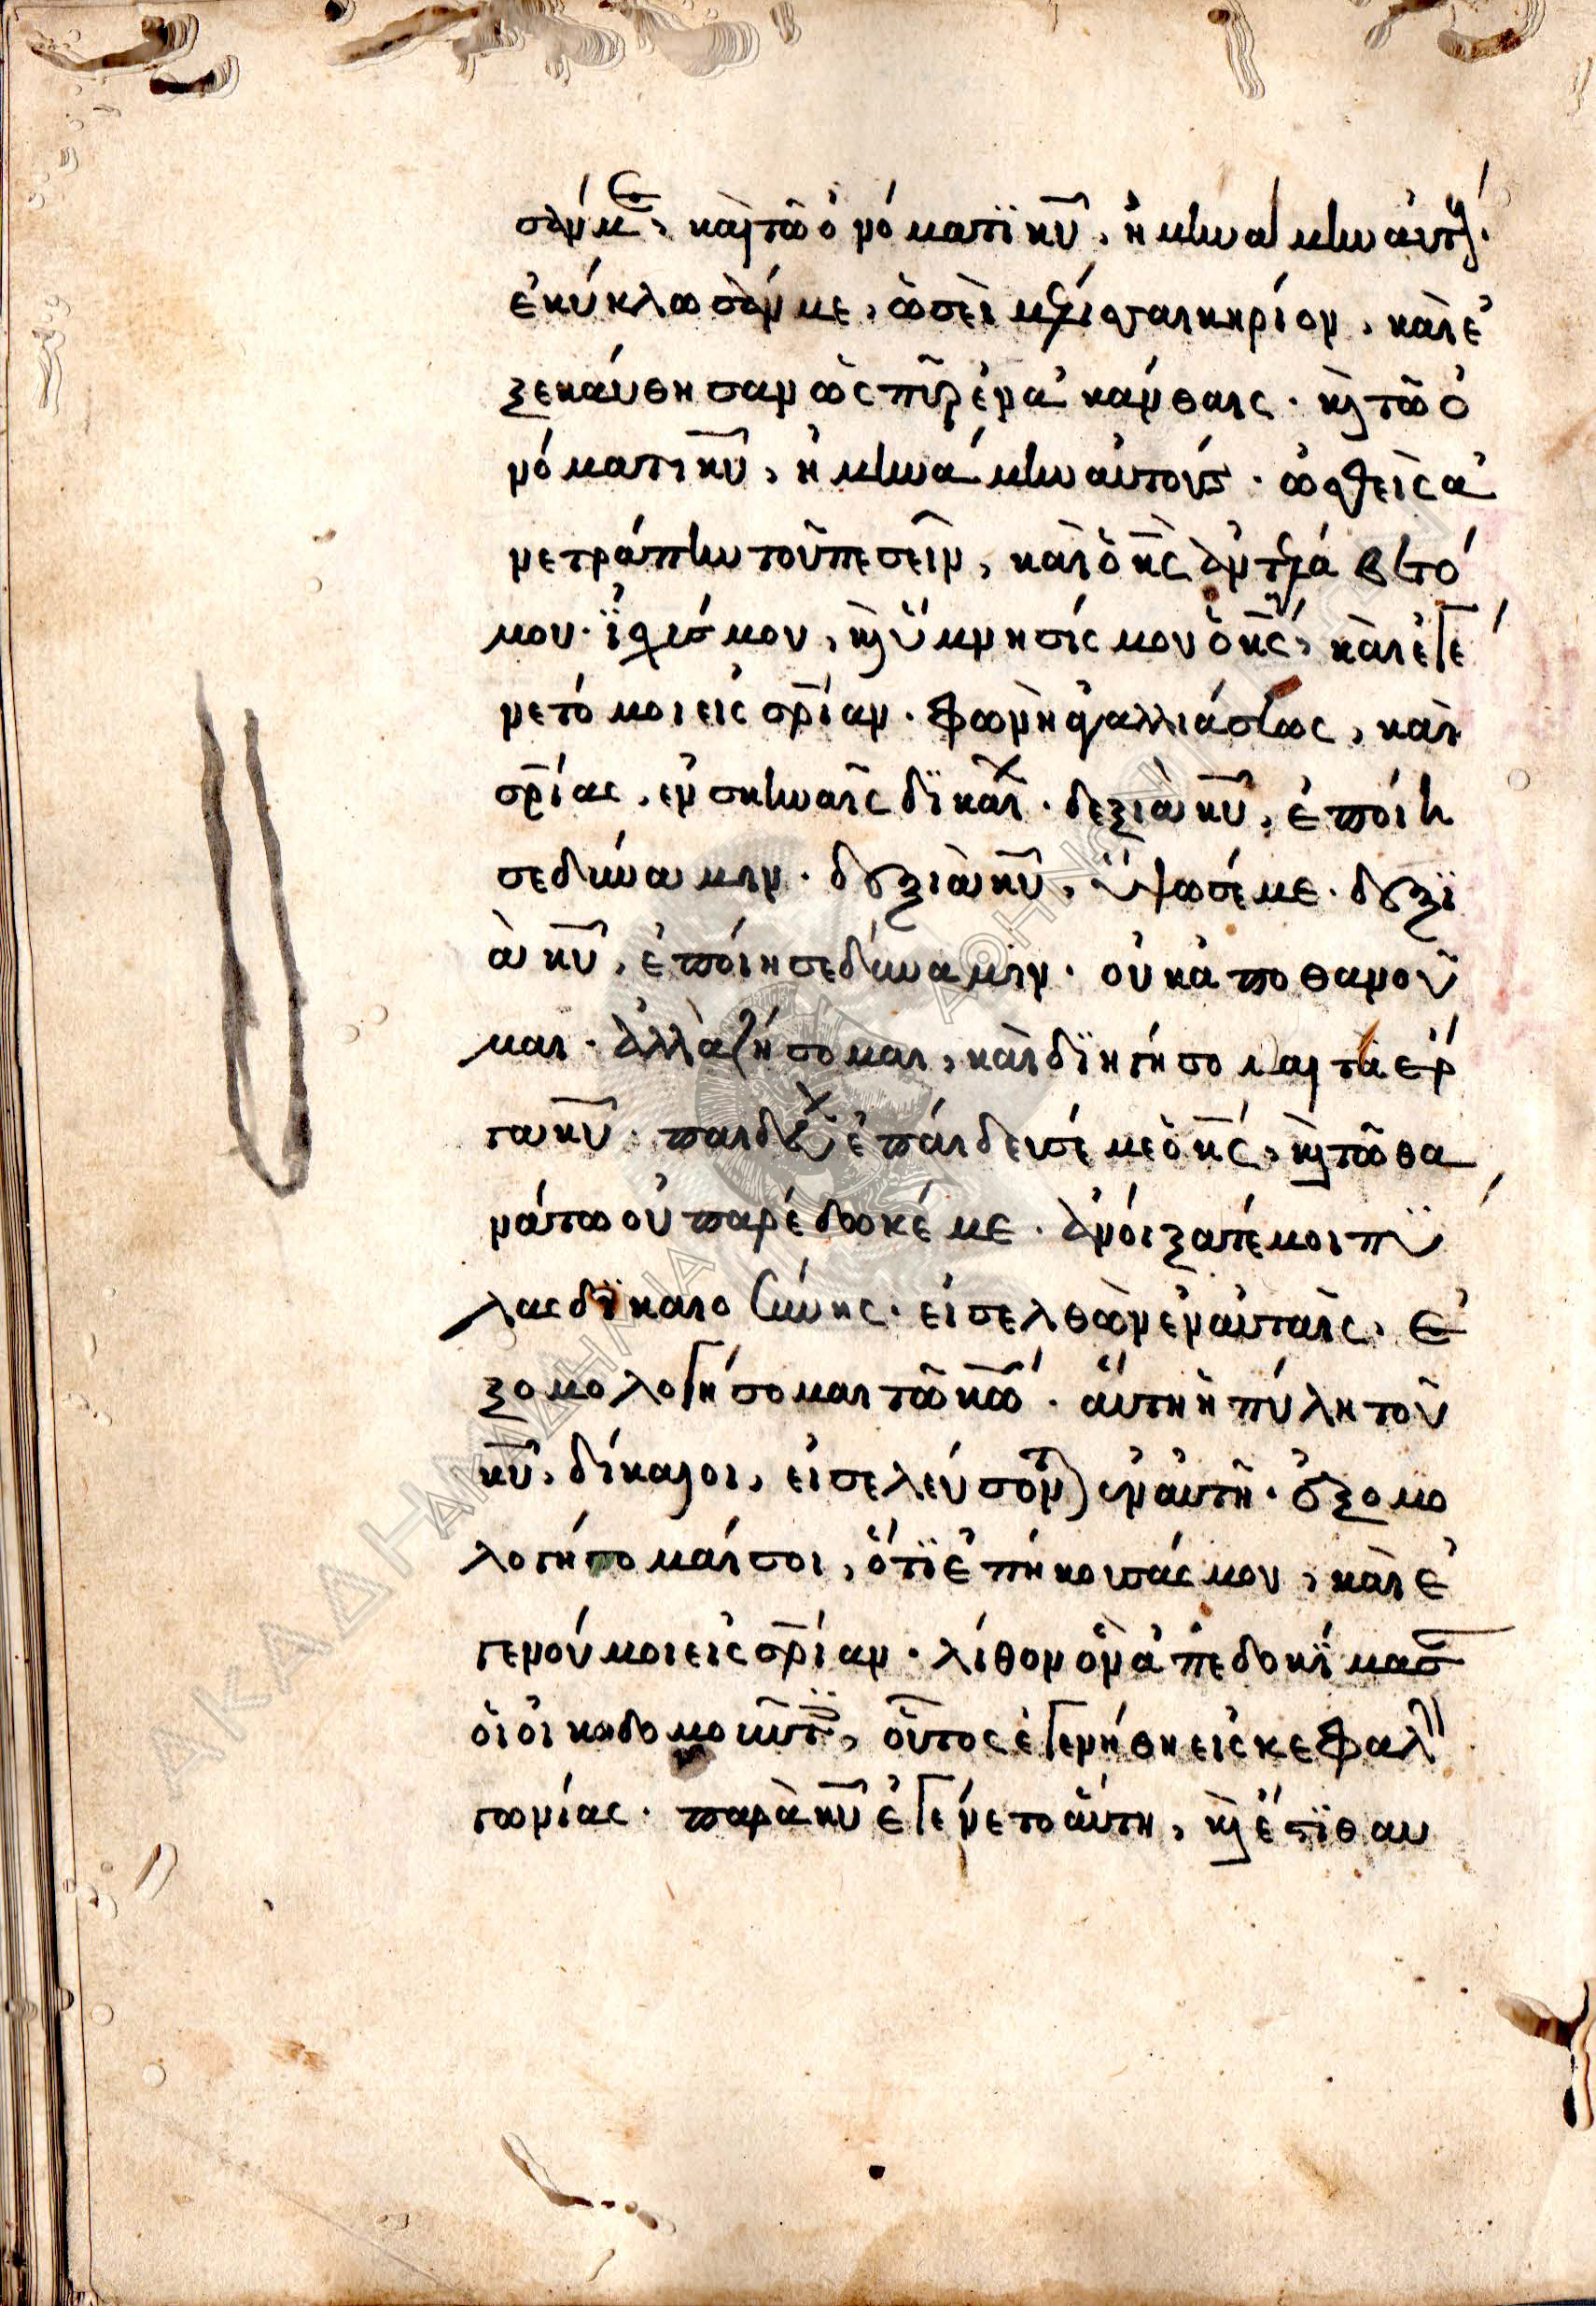 σάν με, καὶ τῶ ὀνόματι κ̅υ̅, ἠμυνάμην αὐτούς.
ἐκύκλωσάν με, ὡσεὶ μέλισσαι κηρίον, καὶ ἐ
ξεκαύθησαν ὡς πῦρ ἐν ἀκάνθαις. κὶ τῶ ὀ
νόματι κ̅υ̅, ἠμυνάμην αὐτούς. ὠσθεὶς ἀ
νετράπην τοῦ πεσεῖν, καὶ ὁ κ̅ς̅ ἀντελάβετό
μου. ἰσχύς μου, κὶ ὕμνησίς μου ὁ κ̅ς̅, καὶ ἐγέ
νετό μοι εἰς σ̅ρ̅ίαν. φωνὴ ἀγαλλιάσεως, καὶ
σ̅ρ̅ίας, ἐν σκηναῖς δικαί. δεξιὰ κ̅υ̅, ἐποίη
σε δύναμιν. δεξιὰ κ̅υ̅, ὕψωσέ με. δεξι
ὰ κ̅υ̅, ἐποίησε δύναμιν. οὐκ ἀποθανοῦ
μαι. ἀλλὰ ζήσομαι, καὶ διηγήσομαι τὰ ἔρ
γα κ̅υ̅. παιδεύων ἐπαίδευσέ με ὁ κ̅ς̅, κὶ τῶ θα
νάτω οὐ παρέδωκέ με. ἀνοίξατέ μοι πύ
λας δικαιοσύνης. εἰσελθὼν ἐν αὐταῖς, ἐ
ξομολογήσομαι τῶ κ̅ω̅. αὕτη ἡ πύλη τοῦ
κ̅υ̅, δίκαιοι, εἰσελεύσονται ἐν αὐτῆ. ἐξομο
λογήσομαί σοι, ὅτι ἐπήκουσάς μου, καὶ ἐ
γένου μοι εἰς σ̅ρ̅ίαν. λίθον ὃν ἀπεδοκίμασαν
οἱ οἰκοδομοῦντες, οὗτος ἐγενήθη εἰς κεφαλὴν
γωνίας. παρὰ κ̅υ̅ ἐγένετο αὕτη, κὶ ἔστι θαυ